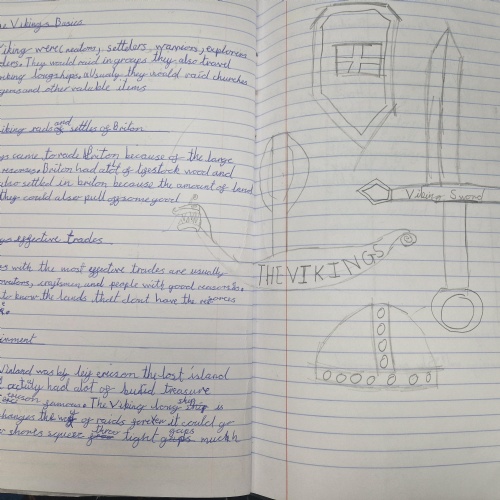 The Vikings Basics
Viking were traders, settlers, warriors, explorers
They would raid in groups they also travel
longships. Usually they would raid churches
gems and other valuable items
Viking raids and settles of Briton
came to raide Briton because of the large
Briton had alot of ligestock wood and
also settled in briton because the amount of land
they could also pull of some good
effective trades
with the most effective trades are usually
craftmen and people with good reasorses,
to know the lands that dont have the resorces
Vinland was by leif ericson the lost island
had alot of buried treasure
ericson famous. The Viking long ship is
changes the way of raids foreter it could go
shorts squeze threw tight gaps much
Viking Sword
THE VIKINGS